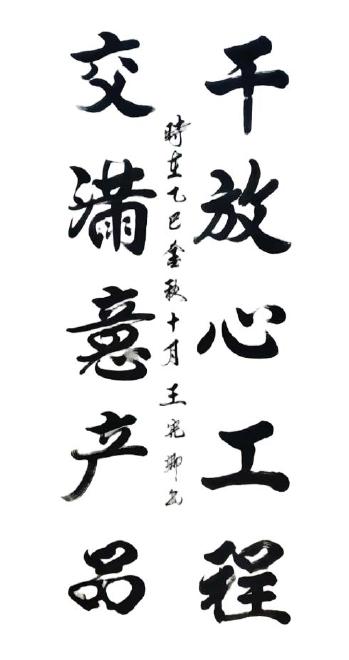 干放心工程
交满意产品
時在乙巳金秋十月王宪卿书